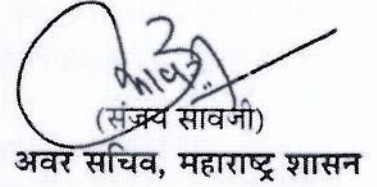 (संजय सावजी)
अवर सचिव, महाराष्ट्र शासन